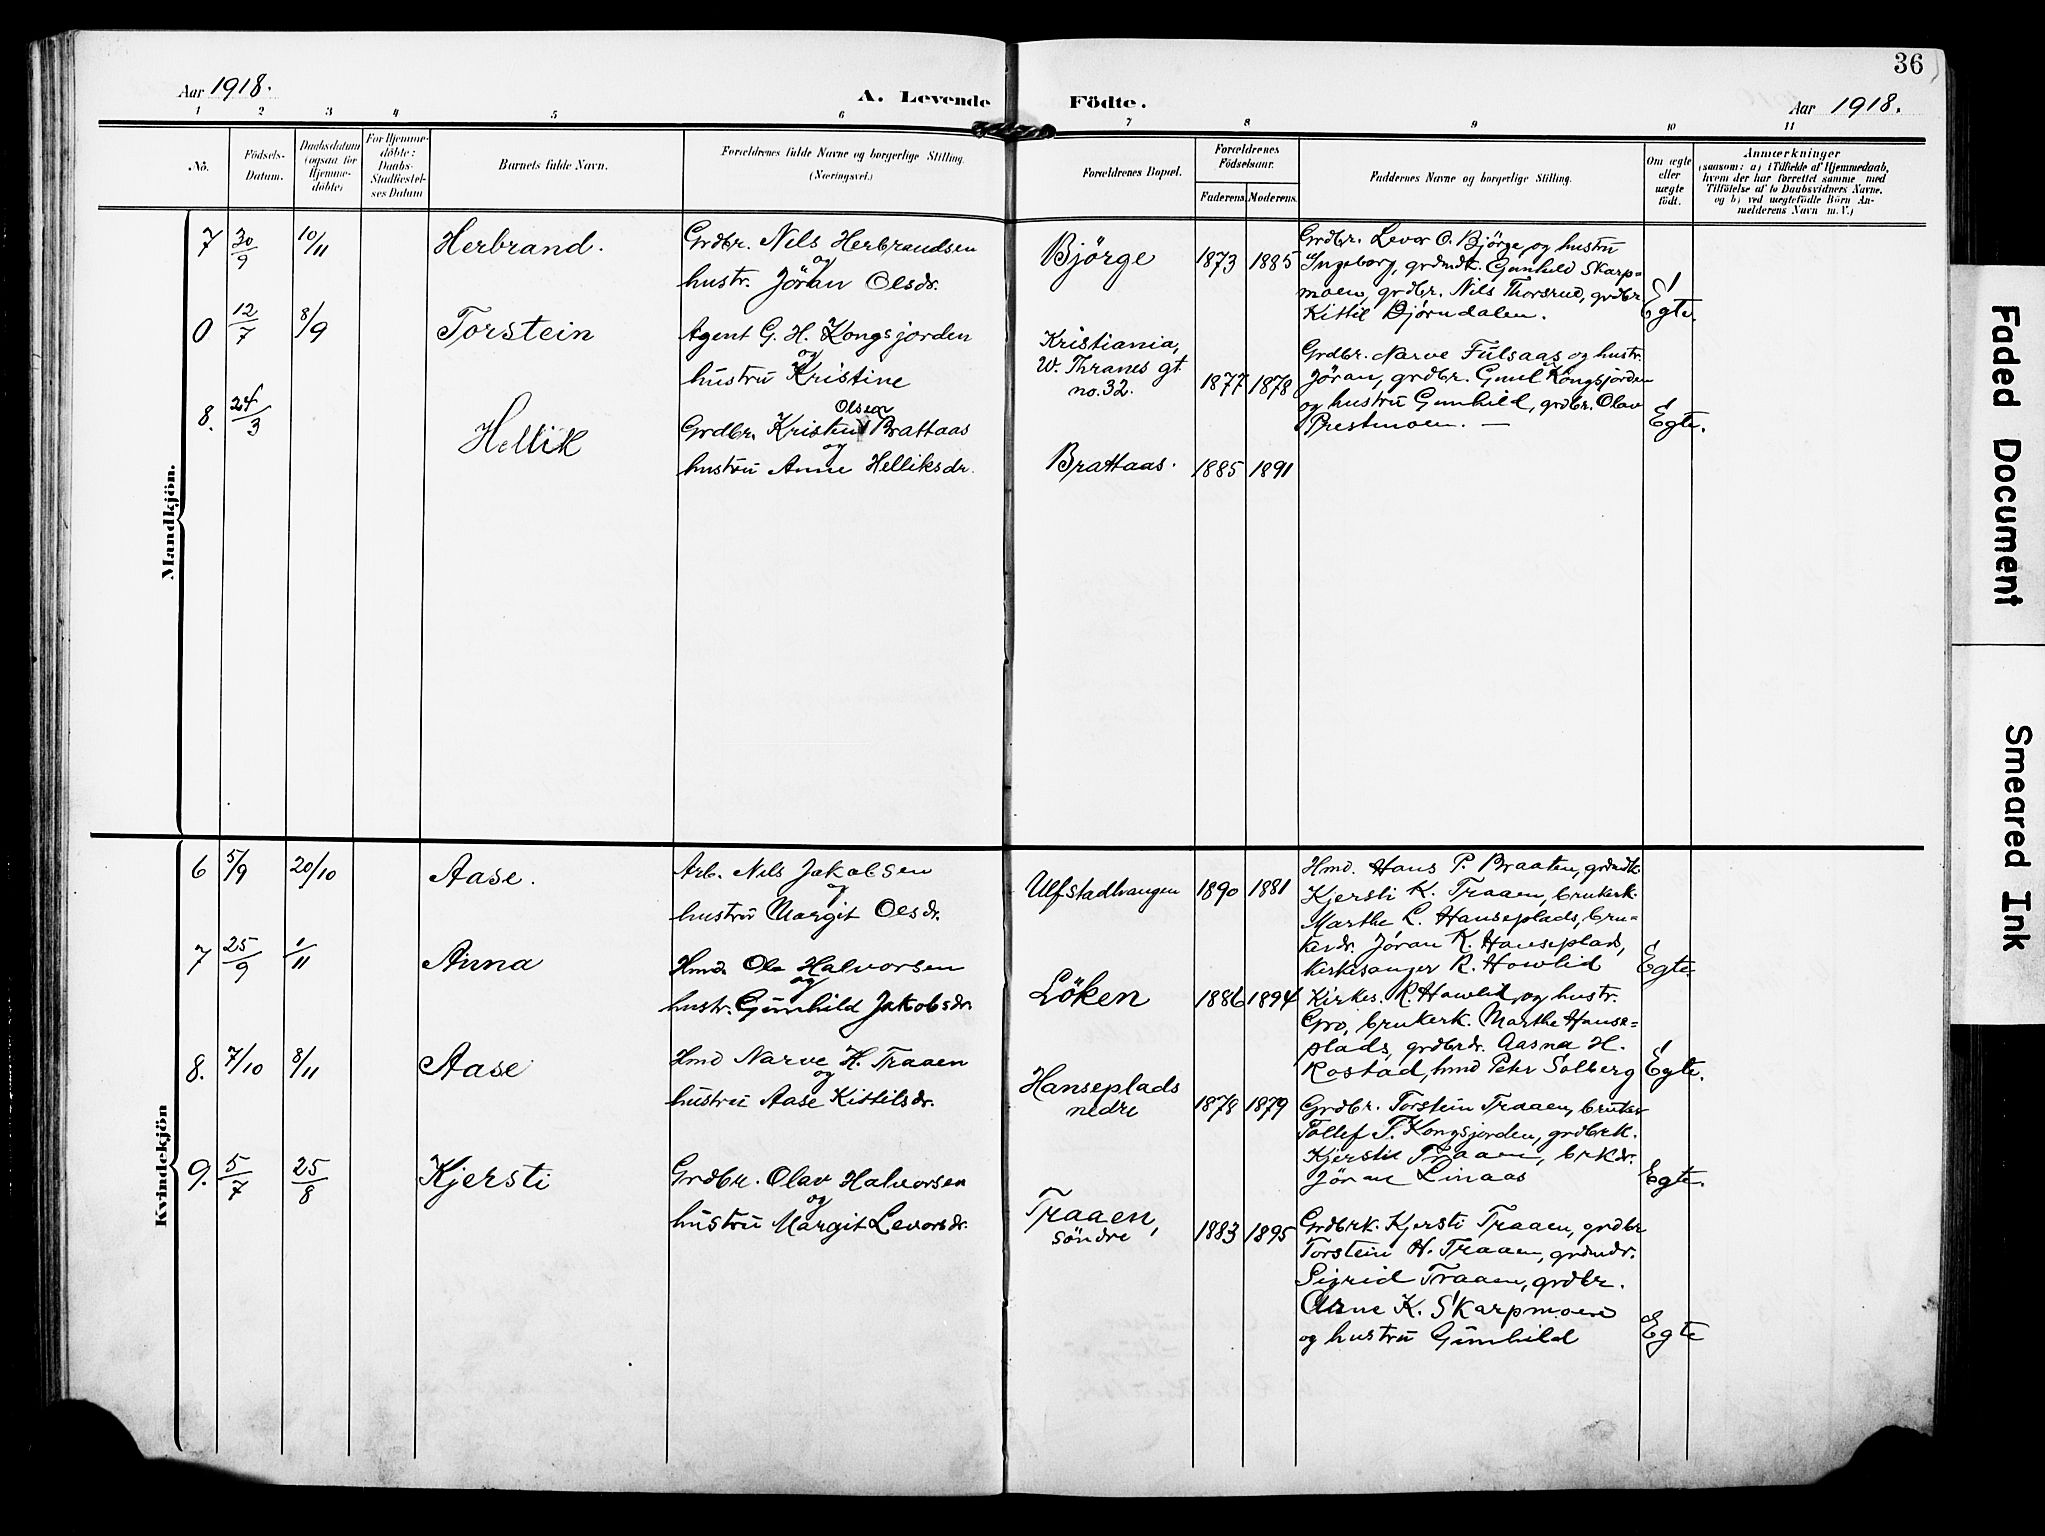 36
Aar 1918.
A. Levende Födte.
Aar 1918.
1 2 3 4 5 6 7 8 9 10 11
No.
Födsels-
Datum.
Daabsdatum
(ogsaa for
Hjemme-
döbte)
For Hjemme-
döbte:
Daabs-
Stadfæstel-
ses Datum
Barnets fulde Navn.
Forældrenes fulde Navne og borgerlige Stilling.
(Næringsvei.)
Forældrenes Bopæl.
Forældrenes
Födselsaar.
Faderens Moderens
Faddernes Navne og borgerlige Stilling.
Om ægte
eller
uægte
födt.
Anmærkninger
(saasom: a) i Tilfælde af Hjemmedaab,
hvem der har forrettet samme med
Tilföielse af to Daabsvidners Navne,
og b) ved uægtefödte Börn An-
melderens Navn m. V.)
Mandkjön.
7 30/9 10/11 Herbrand.
Grdbr. Nils Herbrandsen
og
hustr. Jöran Olsdr.
Björge 1873 1885
Grdbr. Levor O. Björge og hustru
Ingeborg, grdmdk. Gunhild Skarp=
moen, grdbr. Nils Thorsrud, grdbr.
Kittil Björndalen.
Egte.
0 12/7 8/9 Torstein
Agent G. H. Kongsjorden
og
hustru Kristine
Kristiania,
W. Thranes gt
no. 32.
1877 1878
Grdbr. Narve Fulsaas og hustr.
Jöran, grdbr. Gunl. Kongsjorden
og hustru Gunhild, grdbr. Olav
Prestmoen. —
Egte.
8. 24/3 Hellik
Olsen
Grdbr. Kristen Brattaas
og
hustru Anne Helliksdr.
Brattaas. 1885 1891
Kvindekjön
6 5/9 20/10 Aase.
Arb. Nils Jakobsen
og
hustru Margit Olsdr.
Ulfstadhaugen 1890 1881
Hmd. Hans P. Braaten, grdmdk
Kjersti K. Traaen, brukerk.
Marthe L. Hanseplads, bru=
kerdr. Jöran K. Hanseplads,
kirkesanger R. Howlid
Egte
7 25/9 1/11 Anna
Hmd. Ole Halvorsen
og
hustr. Gunhild Jakobsdr.
Löken 1886 1894
Kirkes. R. Howlid og hustr.
Gro, brukerk. Marthe Hanse=
plads, grdbrdr. Aasne H.
Rostad, hmd Peter Solberg
Egte.
8. 7/10 8/11 Aase
Hmd Narve H. Traaen
og
hustru Aase Kittilsdr.
Hanseplads
nedre
1878 1879
Grdbr. Torstein Traaen, bruker
Tollef T. Kongsjorden, grdbrk.
Kjersti Traaen, brkdr.
Jöran Linaas
Egte.
9. 5/7 25/8 Kjersti
Grdbr. Olav Halvorsen
og
hustru Margit Levorsdr.
Traaen,
söndre
1883 1895
Grdbrk. Kjersti Traaen, grdbr
Torstein H. Traaen, grdmdr.
Sigrid Traaen, grdbr.
Arne K. Skarpmoen
og hustru Gunhild
Egte
Faded Document
Smeared Ink